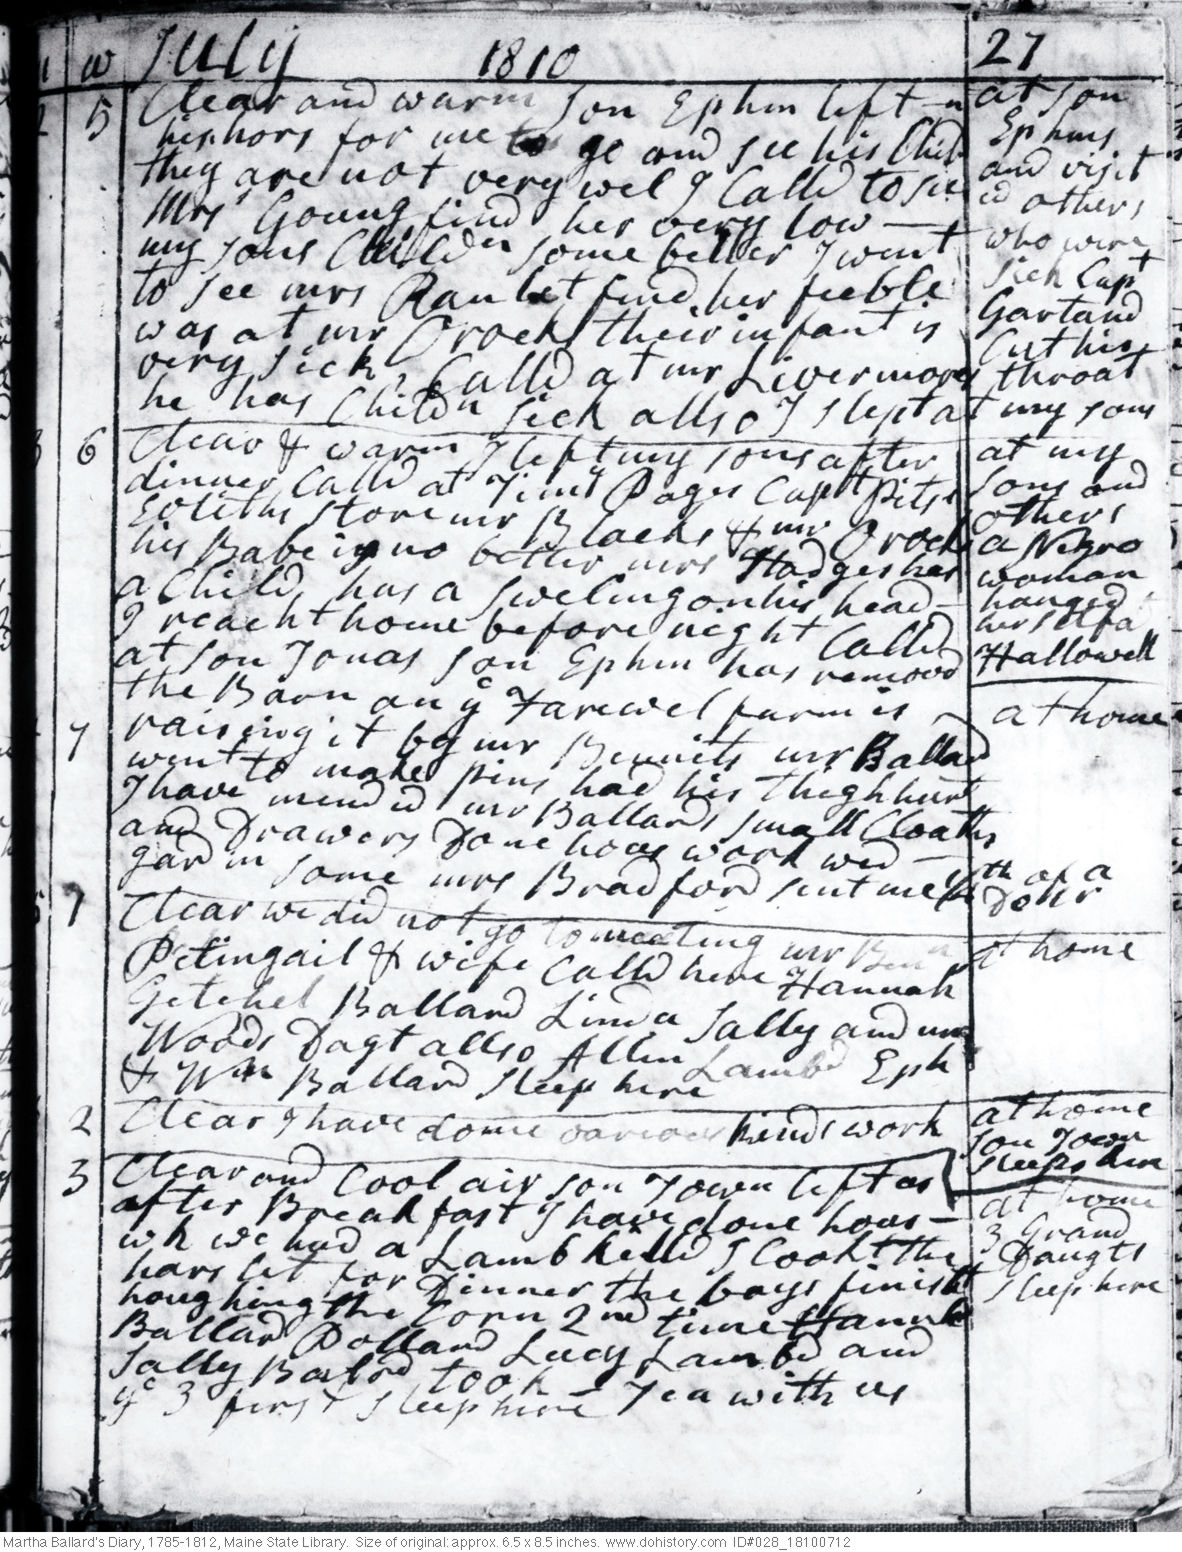 1 w July 1810 27
2 5 Clear and warm Son Ephm left
his hors for me to go and see his Child
they are not very wel I Calld to see
Mrs Young find her very low —
my sons Childn some better I went
to see mrs find her feeble
was at mr Crocks their infant is
very sick, Calld at mr Livermores
he has Childn sick allso I slept at my sons
at son
Ephms
and visit
ed others
who were
sick Capt
Garland
Cut his
throat
6 Clear & warm I left my sons after
dinner Calld at Timy Pages Capt Pits
store mr Blacks & mr Crocks
his Babe is no better mrs Hodges has
a Child has a sweling on his head —
I reacht home before night Calld
at son Jonas son Ephm has removd
the Barn on ye Farewel farm is
at my
sons and
others
a Negro
woman
hanged
her self a
Hallowell
7 raising it by mr Bennits mr Ballad
went to make pins had his thigh hurt
I have mended mr Ballards small Cloaths
and Drawers Done hous work wed —
gardin some mrs Bradford sent me
th of a
Dolr
at home
1 Clear we did not go to meeting mr Ben
Petingail & wife Calld here Hannah
Getchel Ballard Linda Sally and
Woods Dagt allso Allin Lambd Eph
& Wm Ballard sleep here
at home
2 Clear I have done various kinds work
at home
son Town
sleeps here
3 Clear and Cool air son Town left us
after Breakfast I have done hous —
wk we had a Lamb killd I Cookt the
harslet for Dinner the boys finisht
houghing the Corn 2nd time Hannh
Ballard Polland Lucy Lambd and
Sally Balrd took Tea with us
ye 3 first sleep here —
at home
3 Grand
Daugts
sleep here
Martha Ballard's Diary, 1785-1812, Maine State Library. Size of original:approx. 6.5 x 8.5 inches. www.dohistory.com ID#028_18100712